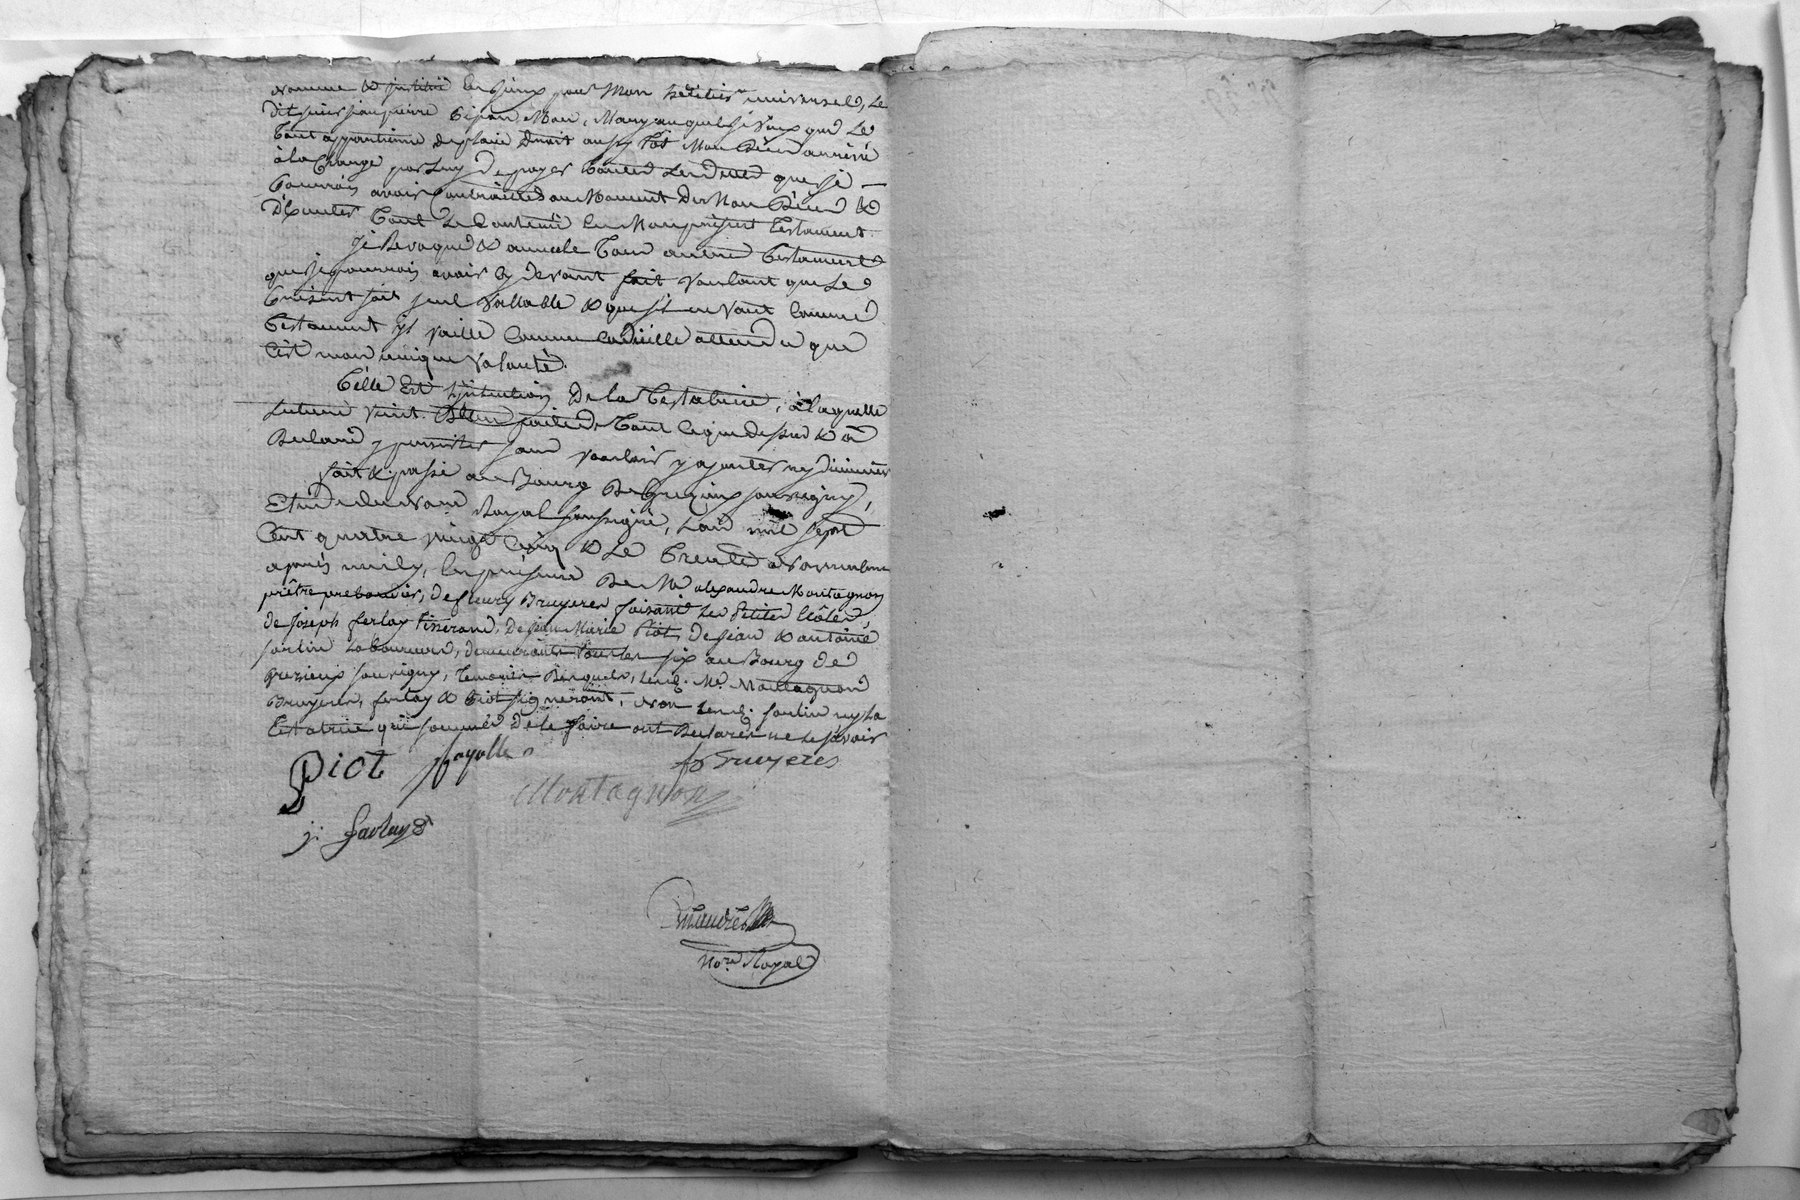 nomme & institue les siens pour mon heritier universel, le
dit sieur jean pierre mon Mary auquel je veux que le
tout appartienne de plain droit aussy tôt mon décés arrivé
à la charge par luy de payer toutes les dettes que je
pourrois avoir contractées au moment de mon décés &
d'éxcuter tout le contenu en mon présent testament.
je Revoque & annulle tous autres testaments
que je pourrois avoir cy devant fait voulant que le
présent soit seul vallable & que s'il ne vaut comme
testament il vaille comme codicille attendu que
c'est mon unique volonté.
telle Est l'jntention De la testatrice, à laquelle
lecture vient d'être faitte de tout ce que dessus & a
Declaré y persister sans vouloir y ajouter ny diminuer
fait & passé au Bourg De Grezieux souvigny,
Etude du No.re Royal soussigné, l'an mil sept
cent quatre vingt cinq & le trente novembre
après midy, en présence De M.e alexandre Montagnon
prêtre prebandier, de fleury Bruyeres faisant les Petites Ecôles,
de Joseph ferlay tisserand, De jean Marie Piot, de jean & antoine
laboureurs, demeurants tous les six au Bourg de
Grezieux souvigny, temoins Requis, lesd. M.e Montagnon
Bruyeres, ferlay & Piot signeront, non lesd. ny la
testatrice qui sommés de le faire ont Declarés ne le savoir
Piot fayolle
f Bruyeres
Montagnon
j. farlay
No.re Royal